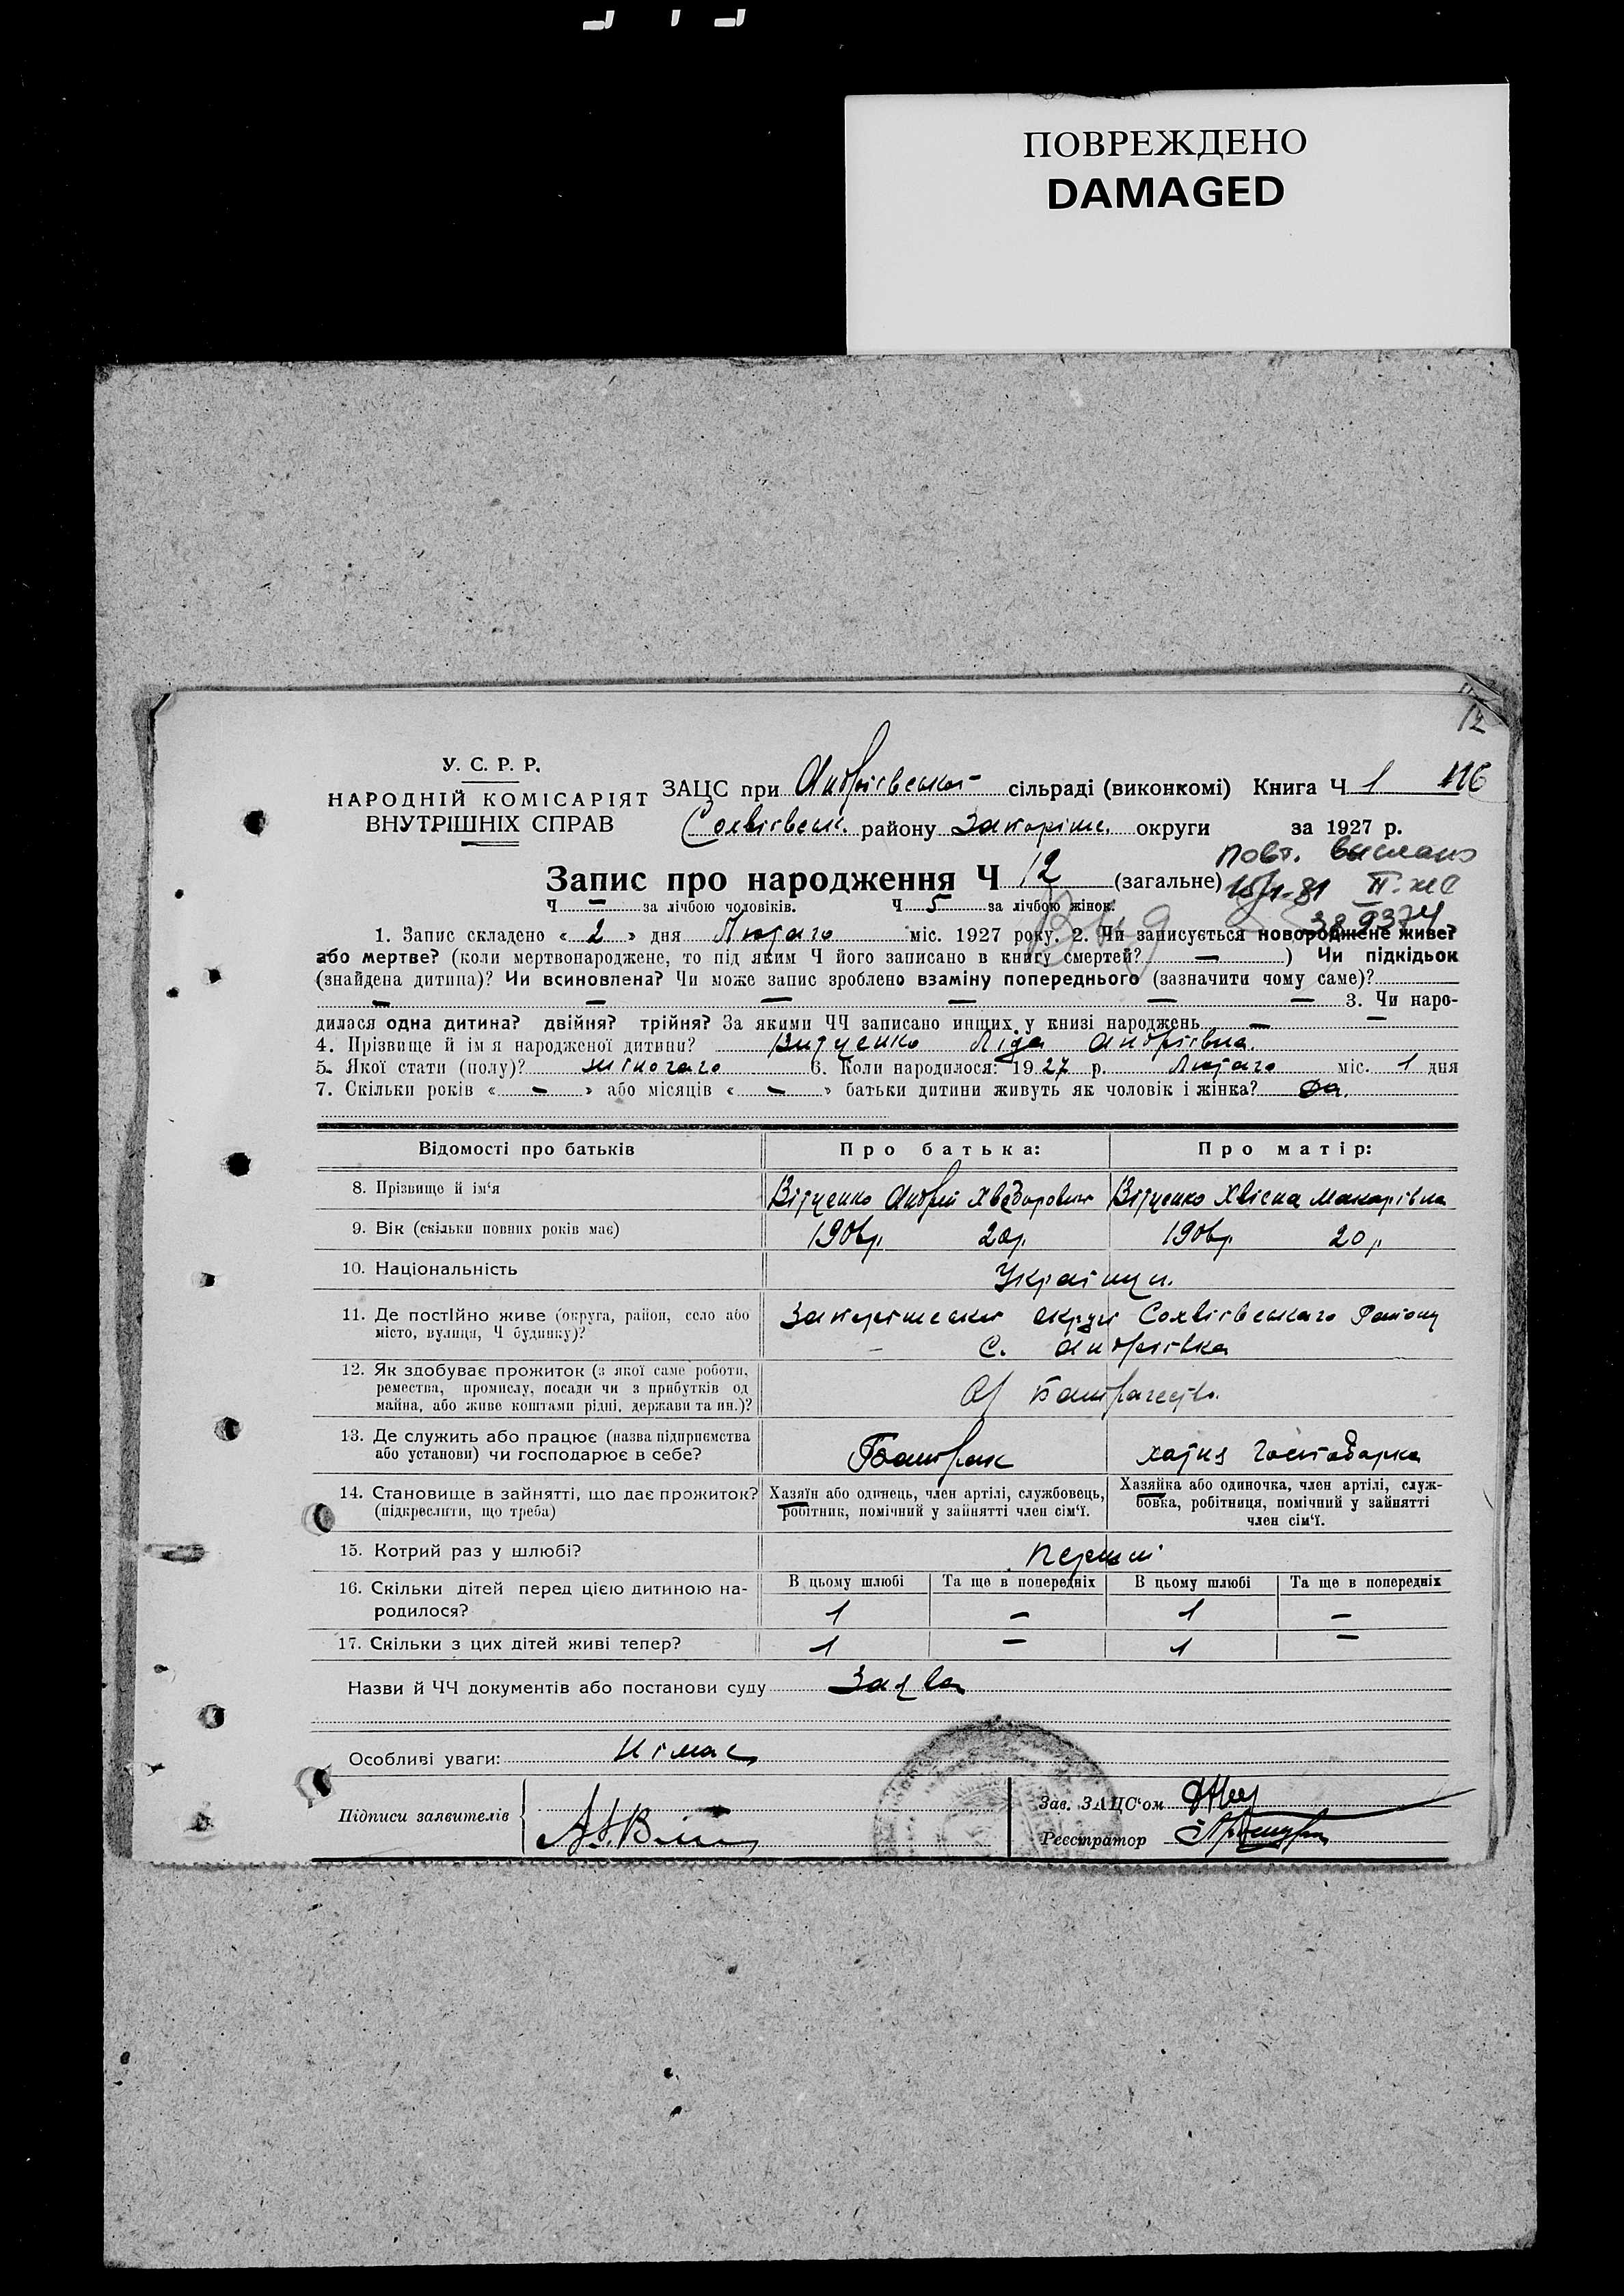 ПОВРЕЖДЕНО
DAMAGED
12
У. С. Р. Р.
НАРОДНІЙ КОМІСАРІЯТ
ВНУТРІШНІХ СПРАВ
ЗАЦС при Андріївській сільраді (виконкомі) Книга Ч 1 116
Софіївськ. району Запоріж. округи за 1927 р.
повт. выслано
Запис про народження Ч 12 (загальне) 15/1-81 II-ЖС
Ч — за лічбою чоловіків. Ч 5 за лічбою жінок. 389374
1. Запис складено « 2 » дня Лютаго міс. 1927 року. 2. Чи записується новороджене живе?
або мертве? (коли мертвонароджене, то під яким Ч його записано в книгу смертей? — ) Чи підкідьок
(знайдена дитина)? Чи всиновлена? Чи може запис зроблено взаміну попереднього (зазначити чому саме)?
— — — — — — 3. Чи наро-
дилася одна дитина? двійня? трійня? За якими ЧЧ записано инших у книзі народжень — —
4. Прізвище й ім я народженої дитини? Витченко Ліда Андріївна.
5. Якої стати (полу)? жіночаго 6. Коли народилося: 1927 р. Лютаго міс. 1 дня
7. Скільки років « — » або місяців « — » батьки дитини живуть як чоловік і жінка? да.
Відомості про батьків Про батька: Про матір:
8. Прізвище й ім'я Вітченко Андрій Хведорович Вітченко Хвісна Макарівна
9. Вік (скільки повних років має) 1906р. 20р. 1906р 20р
10. Національність Українци.
11. Де постійно живе (округа, район, село або
місто, вулиця, Ч будинку)? Запоріжської округи Софіївського Району
С. Андріївка
12. Як здобуває прожиток (з якої саме роботи,
ремества, промислу, посади чи з прибутків од
майна, або живе коштами рідні, держави та ин.)? От Батрачество.
13. Де служить або працює (назва підприємства
або установи) чи господарює в себе? Батрак хатня господарка
14. Становище в зайнятті, що дає прожиток?
(підкреслити, що треба)
Хазяїн або одинець, член артілі, службовець,
робітник, помічний у зайнятті член сім'ї.
Хазяйка або одиночка, член артілі, служ-
бовка, робітниця, помічний у зайнятті
член сім'ї.
15. Котрий раз у шлюбі? Перший
16. Скільки дітей перед цією дитиною на-
родилося?
В цьому шлюбі Та ще в попередніх В цьому шлюбі Та ще в попередніх
1 — 1 —
17. Скільки з цих дітей живі тепер? 1 — 1 —
Назви й ЧЧ документів або постанови суду Заява
Особливі уваги: Німає
Підписи заявителів
Зав. ЗАЦС'ом
Реєстратор